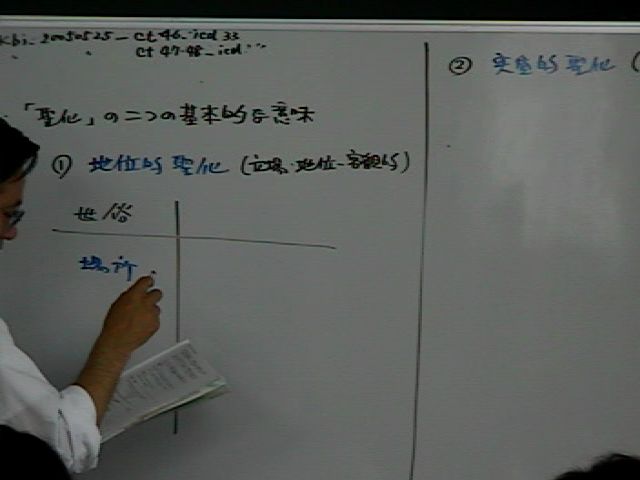 kbi_20050525_ct46_icd33
〃 〃 ct47-48_icd〃
「聖化」の二つの基本的な意味
① 地位的聖化 (立場・地位-客観的)
世俗
場所
② 実質的聖化 (